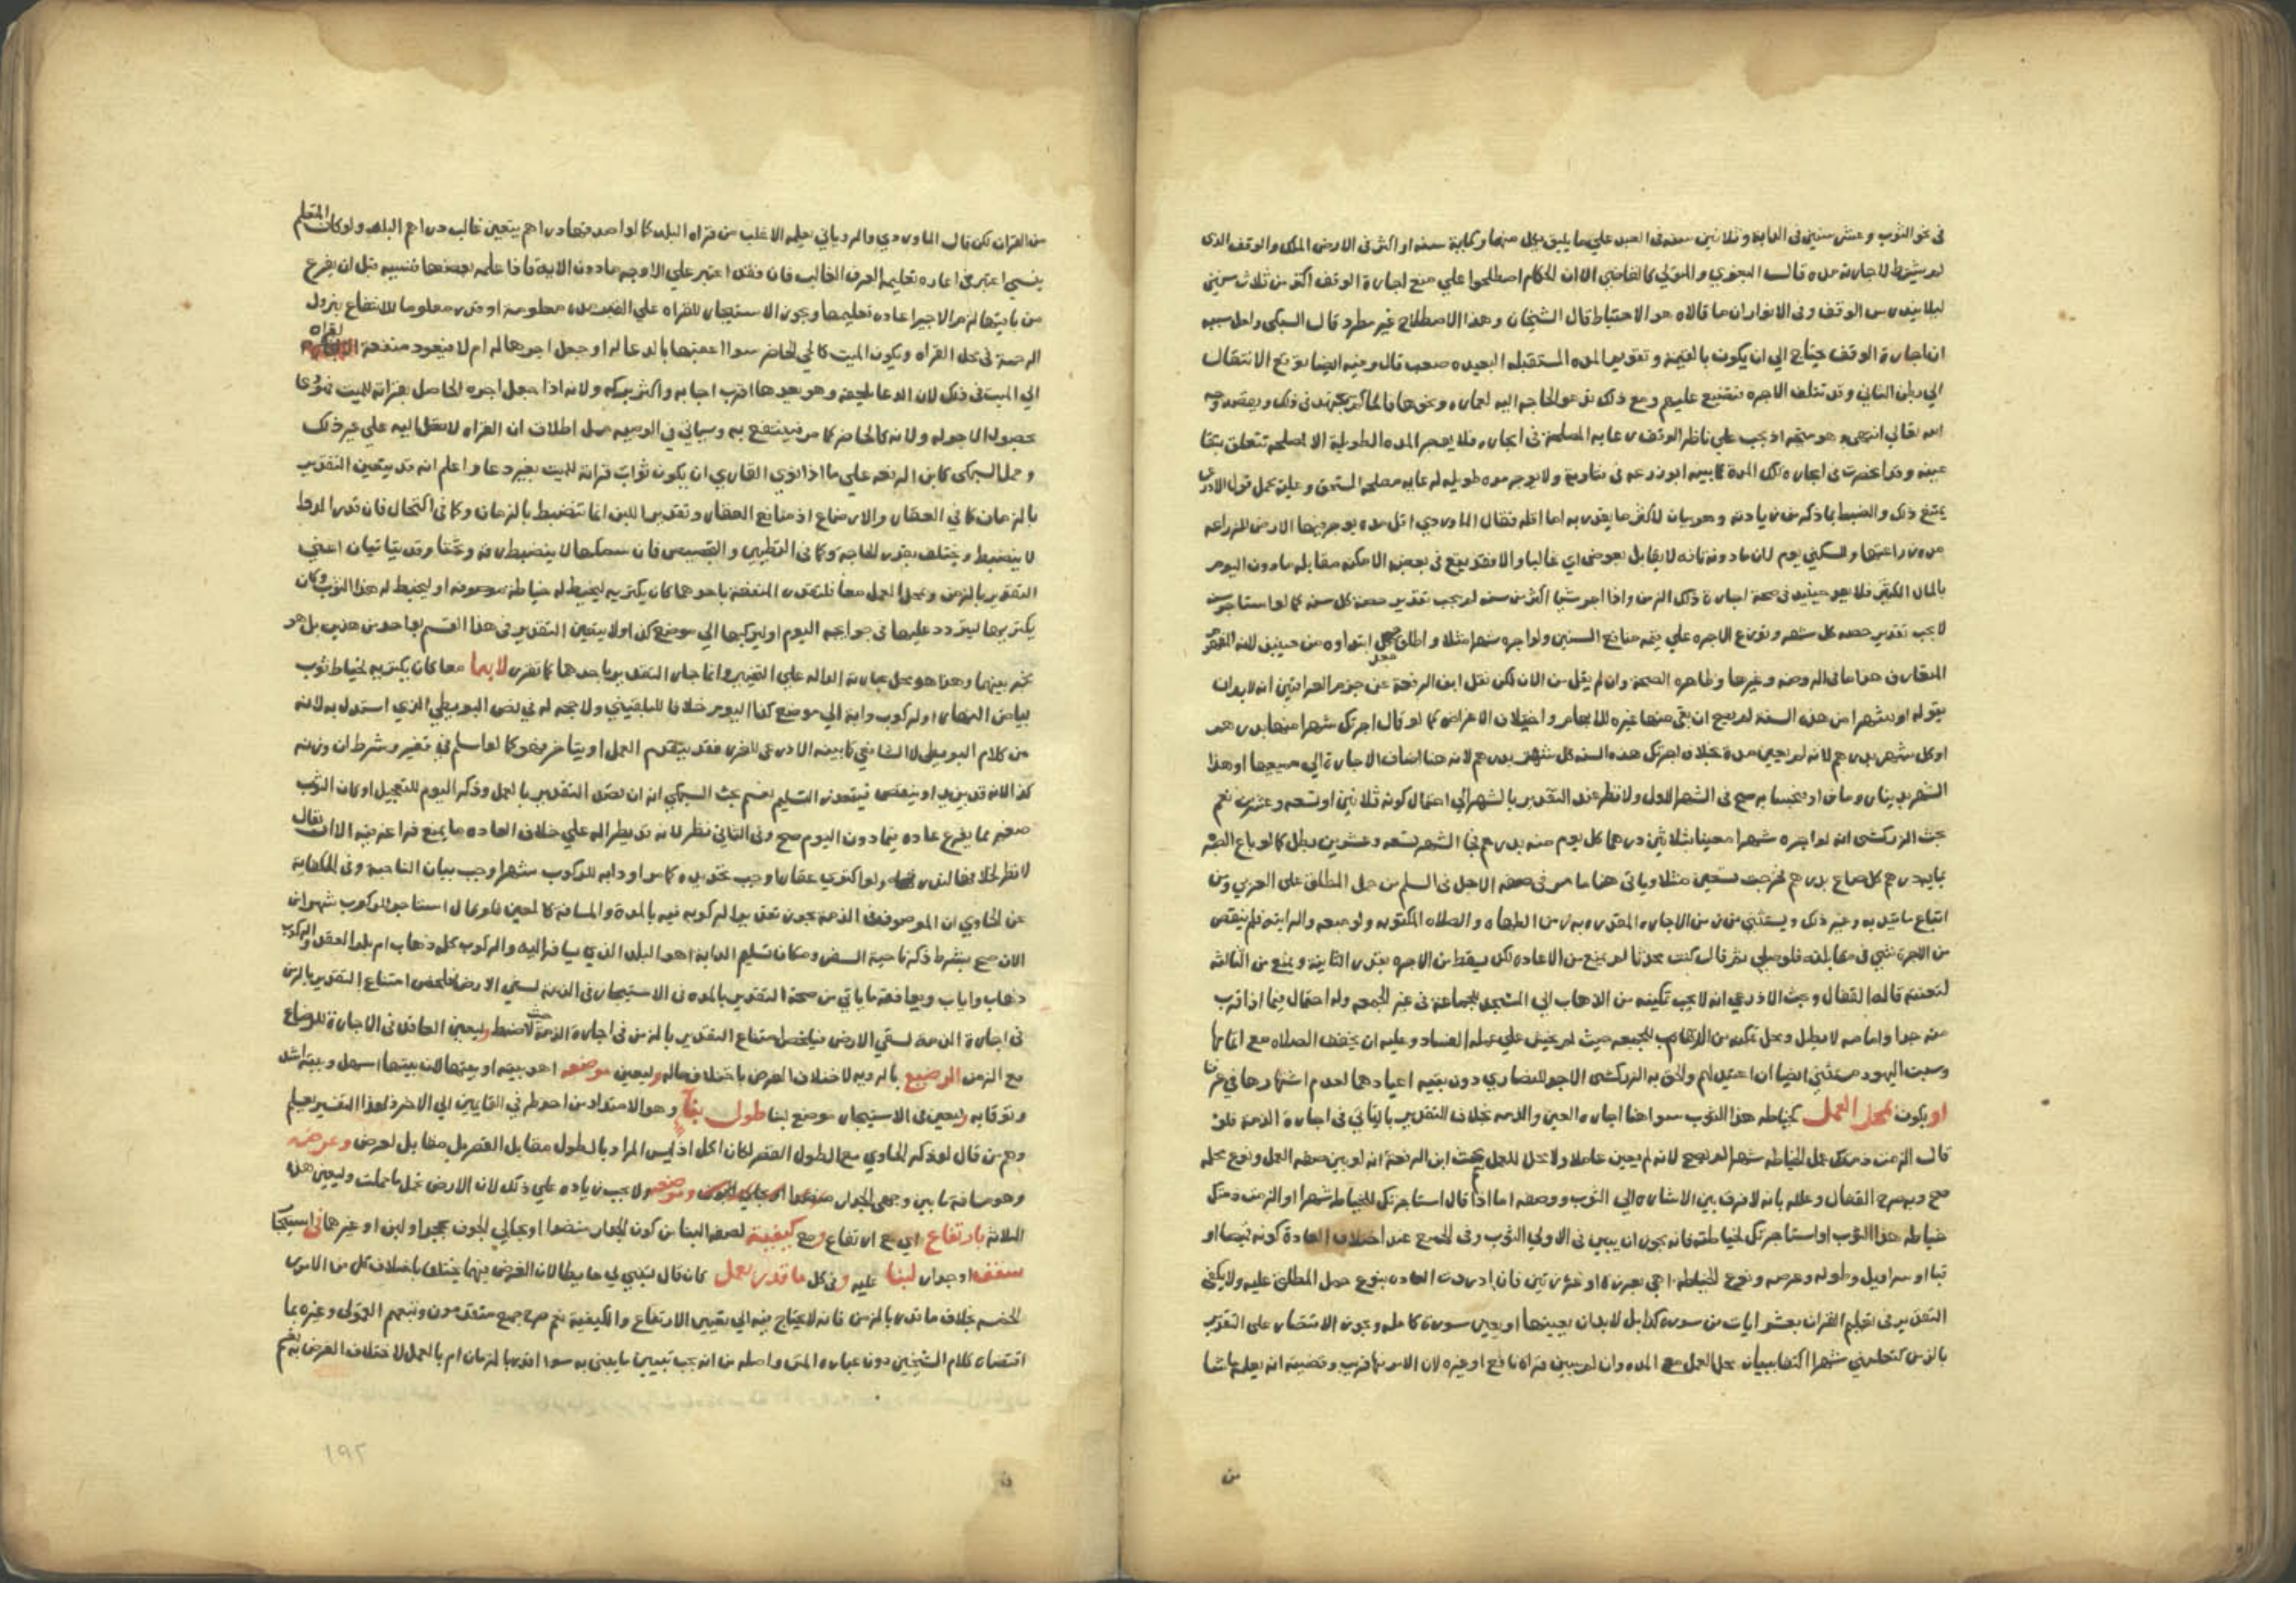 في نحو الثوب وعشر سنين في الدابة وثلاثين سنة في العبد علي ما يليق بكل منها وكماية سنه او اكثر في الارض الملك والوقف الذي
لم يشترط لاجارته مده قال البغوي والمتولي كالقاضي الا ان الحكام اصطلحوا علي منع اجارة الوقف اكثر من ثلاث سنين
ليلا يندرس الوقف وفي الانوار ان ما قالاه هو الاحتياط قال الشيخان وهذا الاصطلاح غير مطرد قال السبكي ولعل سببه
ان اجارة الوقف يحتاج الي ان يكون بالقيمة وتقويم المده المستقبله البعيده صعب قال وفيه ايضا توقع الانتقال
الي بطن الثاني وقد تتلف الاجره فتضيع عليهم ومع ذلك تدعو الحاجه اليه لعماره ونحوها فالحاكم يجتهد في ذلك ويقصد وجه
الله تعالي انتهي وهو متجه اذ يجب علي ناظر الوقف رعاية المصلحة في ايجاره فلا يوجر المده الطويلة الا لمصلحه تتعلق ببقا
عينه وقد انحصرت في اجارة تلك المدة كما بينه ابو زرعه في فتاويه ولا يوجر مده طويله لرعايه مصلحه المستحق وعليه يحمل قول الاذرعي
يمتنع ذلك والضبط بما ذكر من زيادته وهو بيان لاكثر ما يقدر به اما اقله فقال الماوردي اقل مده يوجر فيها الارض للزراعه
مده زراعتها وللسكني يوم لان ما دونه تافه لا يقابل بعوض اي غالبا والا فقد يقع في بعض الامكنه مقابله ما دون اليوم
بالمال الكثير فلا يبعد حينيد في صحة اجارة ذلك الزمن واذا اجر شيا اكثر من سنه لم يجب تقدير حصة كل سنه كما لو استاجر سنه
لا يجب تقدير حصه كل شهر وتوزع الاجره علي قيمه منافع السنين ولو اجره شهرا مثلا واطلق صح وجعل ابتداوه من حينيذ لانه المفهوم
المتعارف هذا ما في الروضه وغيرها وظاهره الصحة وان لم يقل من الان لكن نقل ابن الرفعة عن جزم العراقيين انه لا بد ان
يقوله او شهرا من هذه السنه لم يصح ان بقي منها غيره للابهام واختلاف الاغراض كما لو قال اجرتك شهرا منها بدرهم
او كل شهر بدرهم لانه لم يعين مدة بخلاف اجرتك هذه السنه كل شهر بدرهم لانه هنا اضاف الاجارة الي جميعها او هذا
الشهر بدينار وما زاد فبحسابه صح في الشهر الاول ولا نظر عند التقدير بالشهر الي احتمال كونه ثلاثين او تسعه وعشرين نعم
بحث الزركشي انه لو اجره شهرا معينا بثلاثين درهما كل يوم منه بدرهم فجا الشهر تسعه وعشرين بطل كما لو باع الصبره
بماية درهم كل صاع بدرهم فخرجت تسعين مثلا وياتي هنا ما مر في صفه الاجل في السلم من حمل المطلق علي العربي ومن
امتناع ما يقيد به وغير ذلك ويستثني من زمن الاجاره المقدره به زمن الطهاره والصلاه المكتوبه ولو جمعه والراتبه فلم ينقص
من الاجرة شي في مقابلته فلو صلي ثم قال كنت محدثا لم يمنع من الاعاده لكن يسقط من الاجره بقدر الثانية ويمنع من الثالثه
لتعنته قاله القفال وبحث الاذرعي انه لا يجب تمكينه من الذهاب الي المسجد للجماعة في غير الجمعه وله احتمال فيما اذا قرب
منه جدا وامامه لا يطيل ومحل تمكينه من الذهاب للجمعه حيث لم يخش علي عمله الفساد وعليه ان يخفف الصلاه مع اتمامها
وسبت اليهود مستثني ايضا ان اعتيد لهم والحق به الزركشي الاحد للنصاري دون بقيه اعيادهما لعدم اشتهارها في عرفنا
او يكون بمحل العمل كخياطه هذا الثوب سوا هنا اجاره العين والذمه بخلاف التقدير بالثاني في اجارة الذمة فلو
قال الزمت ذمتك عمل الخياطه شهرا لم يصح لانه لم يعين عاملا ولا محلا للعمل بحث ابن الرفعة انه لو بين صفه العمل ونوع محله
صح وبه صرح القفال وعلله بانه لا فرق بين الاشاره الي الثوب ووصفه اما اذا قال استاجرتك للخياطه شهرا او الزمت ذمتك
خياطه هذا الثوب او استاجرتك لخياطته فانه يجوز ان يبين في الاولي الثوب وفي الجميع عند اختلاف العادة كونه قميصا او
قبا او سراويل وطوله وعرضه ونوع الخياطه اهي بغرزة او غرزتين فان اطردت العاده بنوع حمل المطلق عليه ولا يكفي
التقدير في تعليم القران بعشر ايات من سورة كذا بل لا بد ان يعينها او يعين سورة كاملة ويجوز الاقتصار علي التقدير
بالزمن كتعلمني شهرا اكتفا ببيان محل العمل مع المده وان لم يبين قراة نافع او غيره لان الامر فيها قريب وقضيته انه يعلمه ما شا
من
من القران لكن قال الماوردي والروياني يعلمه الاغلب من قراه البلد كما لو اصدقها دراهم يتعين غالب دراهم البلد ولو كان المتعلم
ينسي اعتبر في اعاده تعليمه العرف الغالب فان فقد اعتبر علي الاوجه ما دون الاية فاذا علمه بعضها فنسيه قبل ان يفرغ
من باقيها لزم الاجير اعاده تعليمها ويجوز الاستيجار للقراه علي القبر مده معلومة او قدر معلوما للانتفاع بنزول
الرحمة في محل القراه ويكون الميت كالحي الحاضر سوا اعقبها بالدعا له او جعل اجرها له ام لا فيعود منفعة القراه
الي الميت في ذلك لان الدعا يلحقه وهو بعدها اقرب اجابه واكثر بركه ولانه اذا جعل اجره الحاصل بقراته للميت فهو دعا
بحصول الاجر له ولانه كالحاضر كما مر فينتفع به وسياتي في الوصيه حمل اطلاق ان القراه لا تصل اليه علي غير ذلك
وحمل السبكي كابن الرفعه علي ما اذا نوي القاري ان يكون ثواب قراته للميت بغير دعا واعلم انه قد يتعين التقدير
بالزمان كما في العقار والارضاع اذ منافع العقار وتقدير اللبن انما تنضبط بالزمان وكما في اكتحال فان قدر الدوا
لا ينضبط ويختلف بقدر الحاجه وكما في التطيين والتجصيص فان سمكها لا ينضبط رقه وثخنا وقد يتاتيان اعني
التقدير بالزمن ومحل العمل معا فلتقدر المنفعة باحدهما كان يكتريه ليخيط له خياطة موصوفه او ليخيط له هذا الثوب وكان
يكتريها ليتردد عليها في حوايجه اليوم او ليركبها الي موضع كذا ولا يتعين التقدير في هذا القسم بواحد من هذين بل هو
مخير بينهما وهذا هو محل عبارته الداله علي التخيير وانما جاز التقدير باحدهما كما تقرر لا بهما معا كان يكتريه لخياط ثوب
بياض النهار او لركوب دابة الي موضع كذا اليوم خلافا للبلقيني ولا حجه له في نص البويطي الذي استدل به لانه
من كلام البويطي لا الشافعي كما بينه الاذرعي للغرر فقد يتقدم العمل او يتاخر فهو كما لو اسلم في قفيز وشرط ان وزنه
كذا لانه قد يزيد او ينقص فيتعذر التسليم نعم بحث السبكي انه ان قصد التقدير بالعمل وذكر اليوم للتعجيل او كان الثوب
صغير مما يفرغ عاده فيما دون اليوم صح وفي الثاني نظر لانه قد يطرا له علي خلاف العاده ما يمنع فراغه فيه الا ان يقال
لا نظر لخلاف الغالب ولو اكتري عقارا وجب تحديده كما مر او دابه للركوب شهرا وجب بيان الناحية وفي الكفاية
عن الحاوي ان الموصوفه في الذمة يجوز تقديرها لركوبه فيه بالمدة والمسافة كالمعين فلو قال استاجر للركوب شهر من
الان صح بشرط ذكر ناحية السفر ومكان تسليم الدابة اهو البلد الذي يسافر اليه والركوب كله ذهاب ام بلد العقد والركوب
ذهاب واياب ويوافقه ما ياتي من صحة التقدير بالمده في الاستيجار في الذمه لسقي الارض فلتخص امتناع التقدير بالزمن
في اجارة الذمة لسقي الارض فيختص امتناع التقدير بالزمن في اجارة الذمة حيث لا ضبط وليعين العاقد في الاجارة للرضاع
مع الزمن الرضيع بالرويه لاختلاف الغرض باختلاف حاله وليعين موضعه اهو بيته او بيتها لانه بيتها اسهل وبيته اشد
وثوقا به وليعين في الاستيجار موضع لبنا طول بنا وهو الامتداد من احد طرفي القايين الي الاخر ولهذا التفسير يعلم
وهم من قال لو ذكر الحاوي مع الطول القصر لكان اكل اذ ليس المراد بالطول مقابل القصر بل مقابل لعرض وعرضه
وهو مسافة ما بين وجهي الجدار وموضعه ولا يجب زياده علي ذلك لان الارض تحمل ما حملت وليعين هذه
الثلاثه بارتفاع اي مع ارتفاع ومع كيفية لصفه البنا من كون الجدار منضدا او خالي الجوف بحجر او لبن او غيرهما في استيجار
سقف او جدار لبنا عليه وفي كل ما قدر بعمل كان قال لتبني لي حايطا لان الغرض فيها يختلف باختلاف كل من الامور
الخمسه بخلاف ما قدر بالزمن فانه لا يحتاج فيه الي تعيين الارتفاع والكيفية نعم صرح جمع متقدمون وتبعهم القمولي وغيره بما
اقتضاه كلام الشيخين دون عباره المتن واصله من انه يجب تبيين ما يبني به سوا اقدر بالزمان ام بالعمل لاختلاف الغرض به نعم
١٩٢